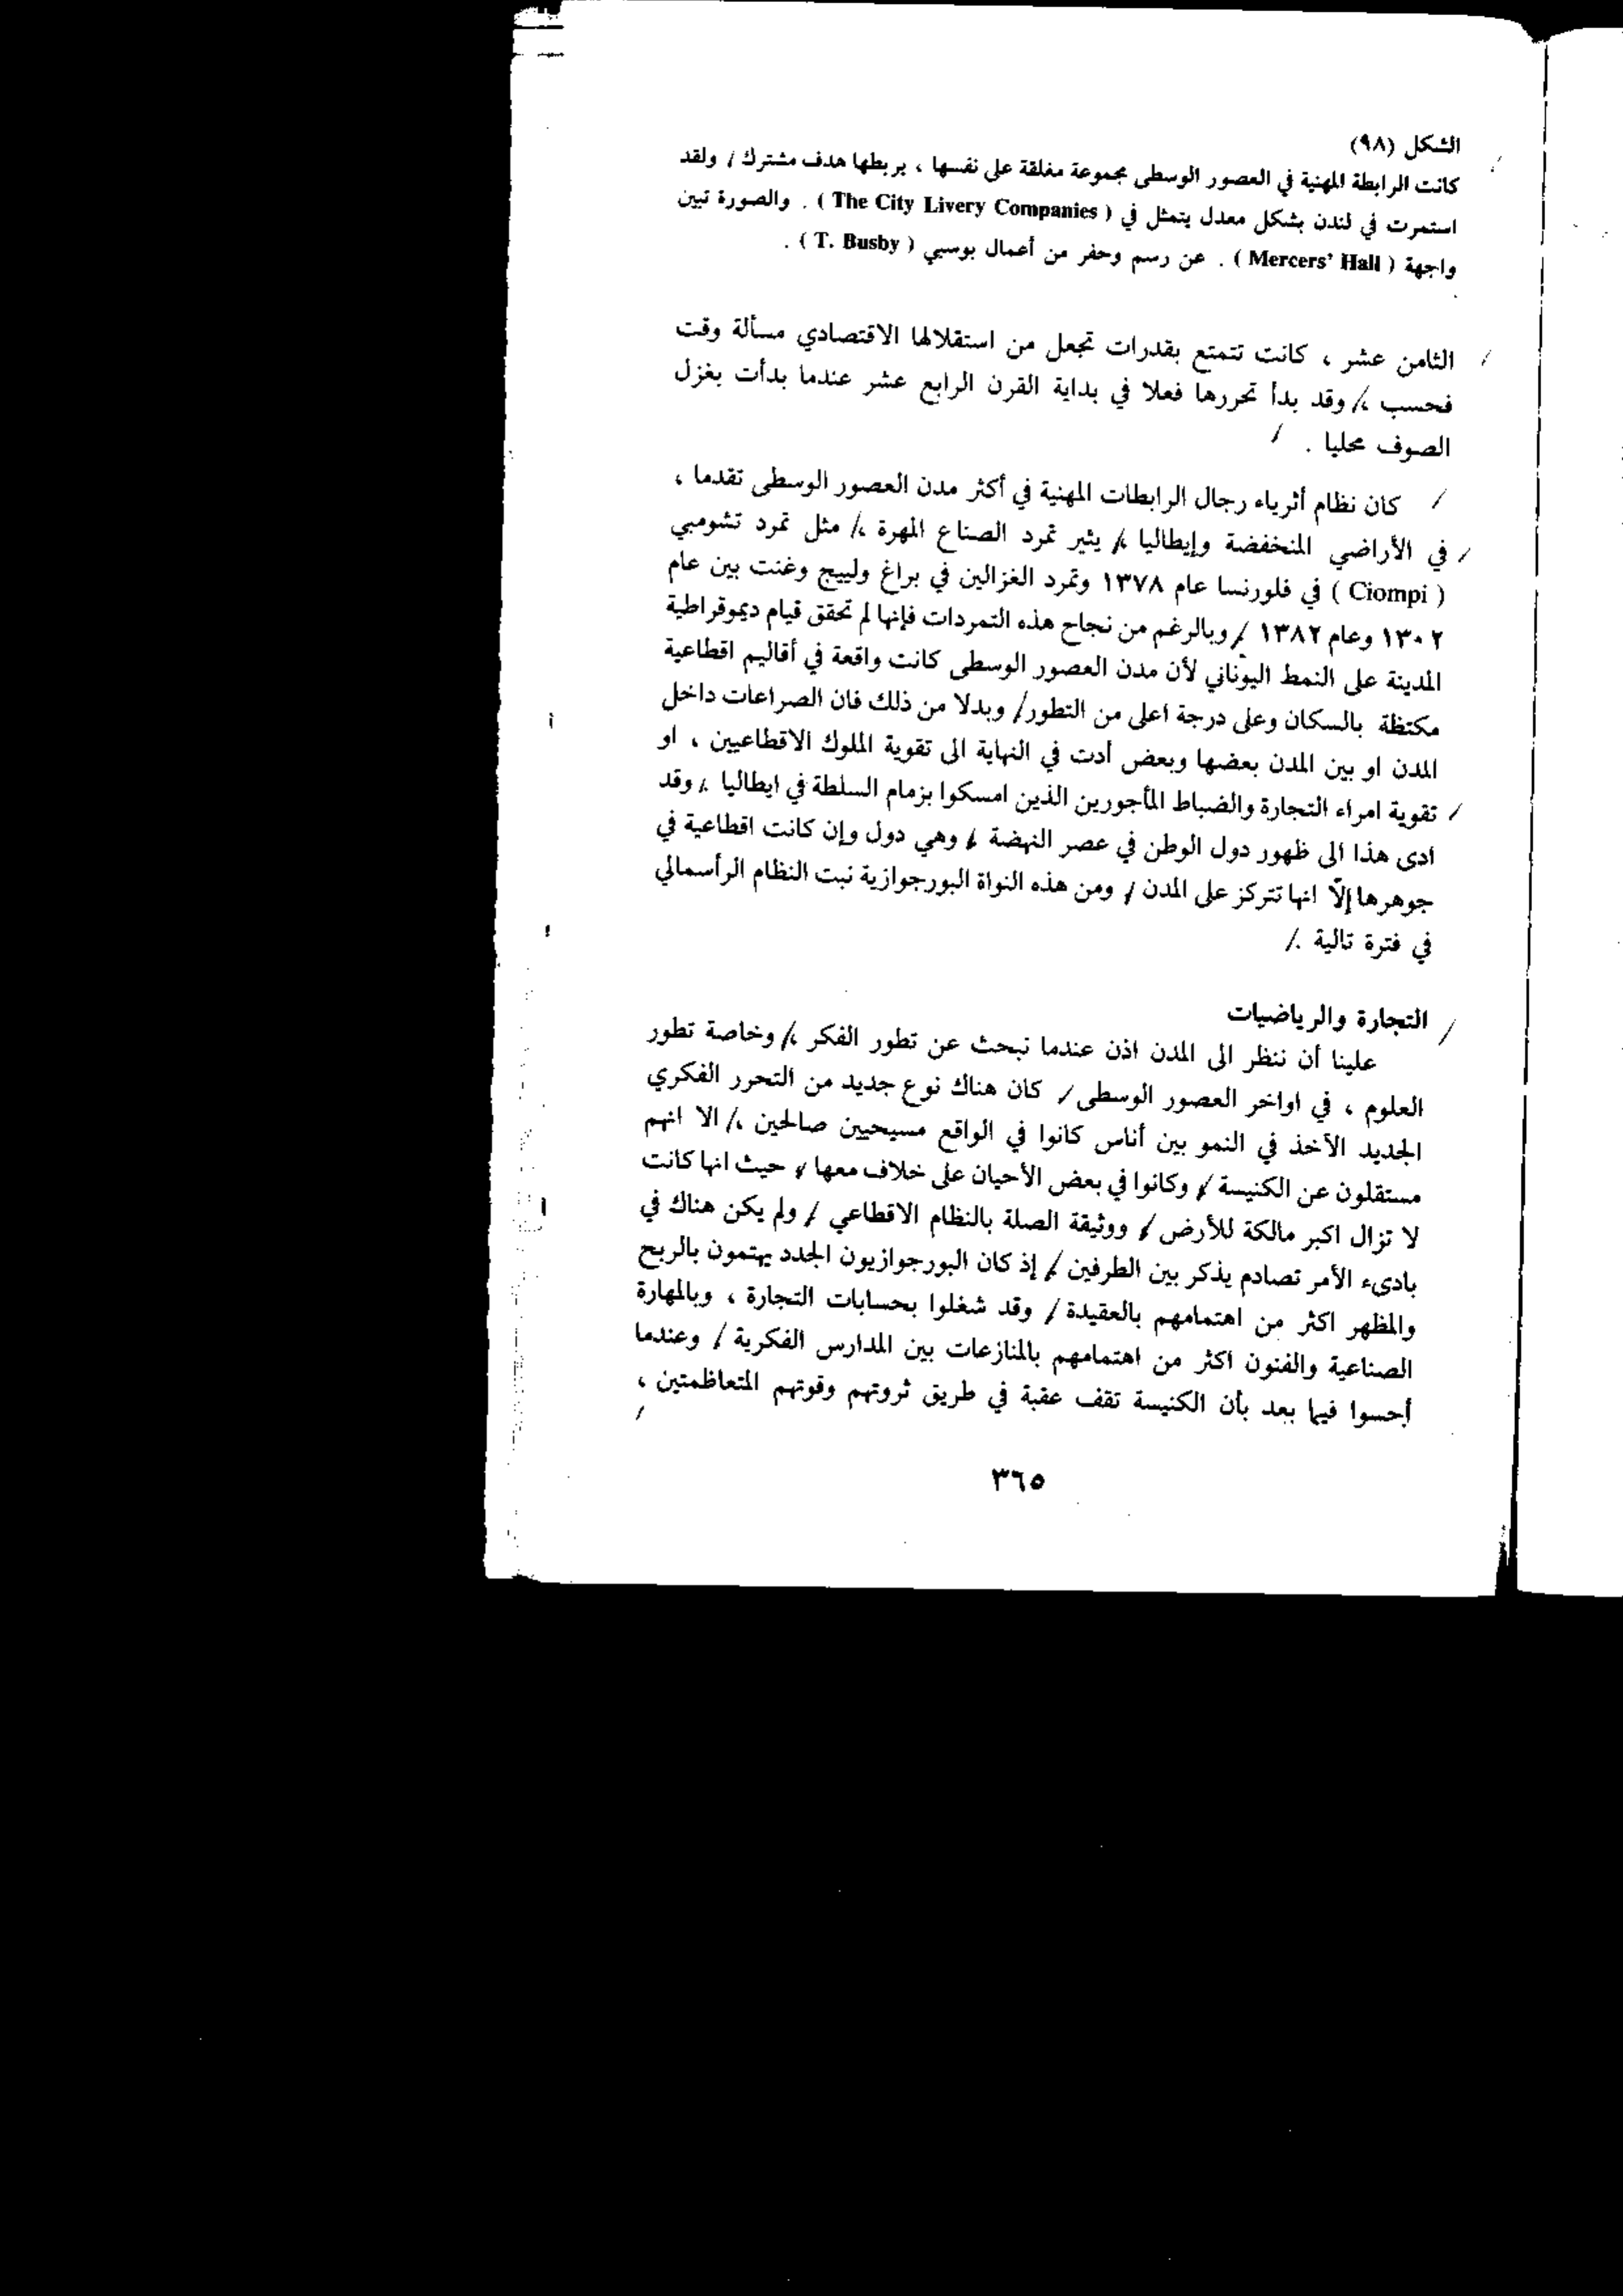 الشكل (٩٨)
كانت الرابطة المهنية في العصور الوسطى مجموعة مغلقة على نفسها ، يربطها هدف مشترك / ولقد
استمرت في لندن بشكل معدل يتمثل في ( The City Livery Companies ) . والصورة تبين
واجهة ( Mercers' Hall ) . عن رسم وحفر من أعمال بوسبي ( T. Busby ) .
الثامن عشر ، كانت تتمتع بقدرات تجعل من استقلالها الاقتصادي مسألة وقت
فحسب ،/ وقد بدأ تحررها فعلا في بداية القرن الرابع عشر عندما بدأت بغزل
الصوف محليا . /
/ كان نظام أثرياء رجال الرابطات المهنية في أكثر مدن العصور الوسطى تقدما ،
/ في الأراضي المنخفضة وإيطاليا ،/ يثير تمرد الصناع المهرة ،/ مثل تمرد تشومبي
( Ciompi ) في فلورنسا عام ١٣٧٨ وتمرد الغزالين في براغ ولييج وغنت بين عام
١٣٠٢ وعام ١٣٨٢ / وبالرغم من نجاح هذه التمردات فإنها لم تحقق قيام ديموقراطية
المدينة على النمط اليوناني لأن مدن العصور الوسطى كانت واقعة في أقاليم اقطاعية
مكتظة بالسكان وعلى درجة اعلى من التطور/ وبدلا من ذلك فان الصراعات داخل
المدن او بين المدن بعضها وبعض أدت في النهاية الى تقوية الملوك الاقطاعيين ، او
/ تقوية امراء التجارة والضباط المأجورين الذين امسكوا بزمام السلطة في ايطاليا ،/ وقد
ادى هذا الى ظهور دول الوطن في عصر النهضة ،/ وهي دول وإن كانت اقطاعية في
جوهرها إلّا انها تتركز على المدن / ومن هذه النواة البورجوازية نبت النظام الرأسمالي
في فترة تالية ./
/ التجارة والرياضيات
علينا أن ننظر الى المدن اذن عندما نبحث عن تطور الفكر ،/ وخاصة تطور
العلوم ، في اواخر العصور الوسطى / كان هناك نوع جديد من التحرر الفكري
الجديد الآخذ في النمو بين أناس كانوا في الواقع مسيحيين صالحين ،/ الا انهم
مستقلون عن الكنيسة ،/ وكانوا في بعض الأحيان على خلاف معها ،/ حيث انها كانت
لا تزال اكبر مالكة للأرض ،/ ووثيقة الصلة بالنظام الاقطاعي ،/ ولم يكن هناك في
بادىء الأمر تصادم يذكر بين الطرفين ،/ إذ كان البورجوازيون الجدد يهتمون بالربح
والمظهر اكثر من اهتمامهم بالعقيدة / وقد شغلوا بحسابات التجارة ، وبالمهارة
الصناعية والفنون اكثر من اهتمامهم بالمنازعات بين المدارس الفكرية / وعندما
أحسوا فيما بعد بأن الكنيسة تقف عقبة في طريق ثروتهم وقوتهم المتعاظمتين ،
٣٦٥